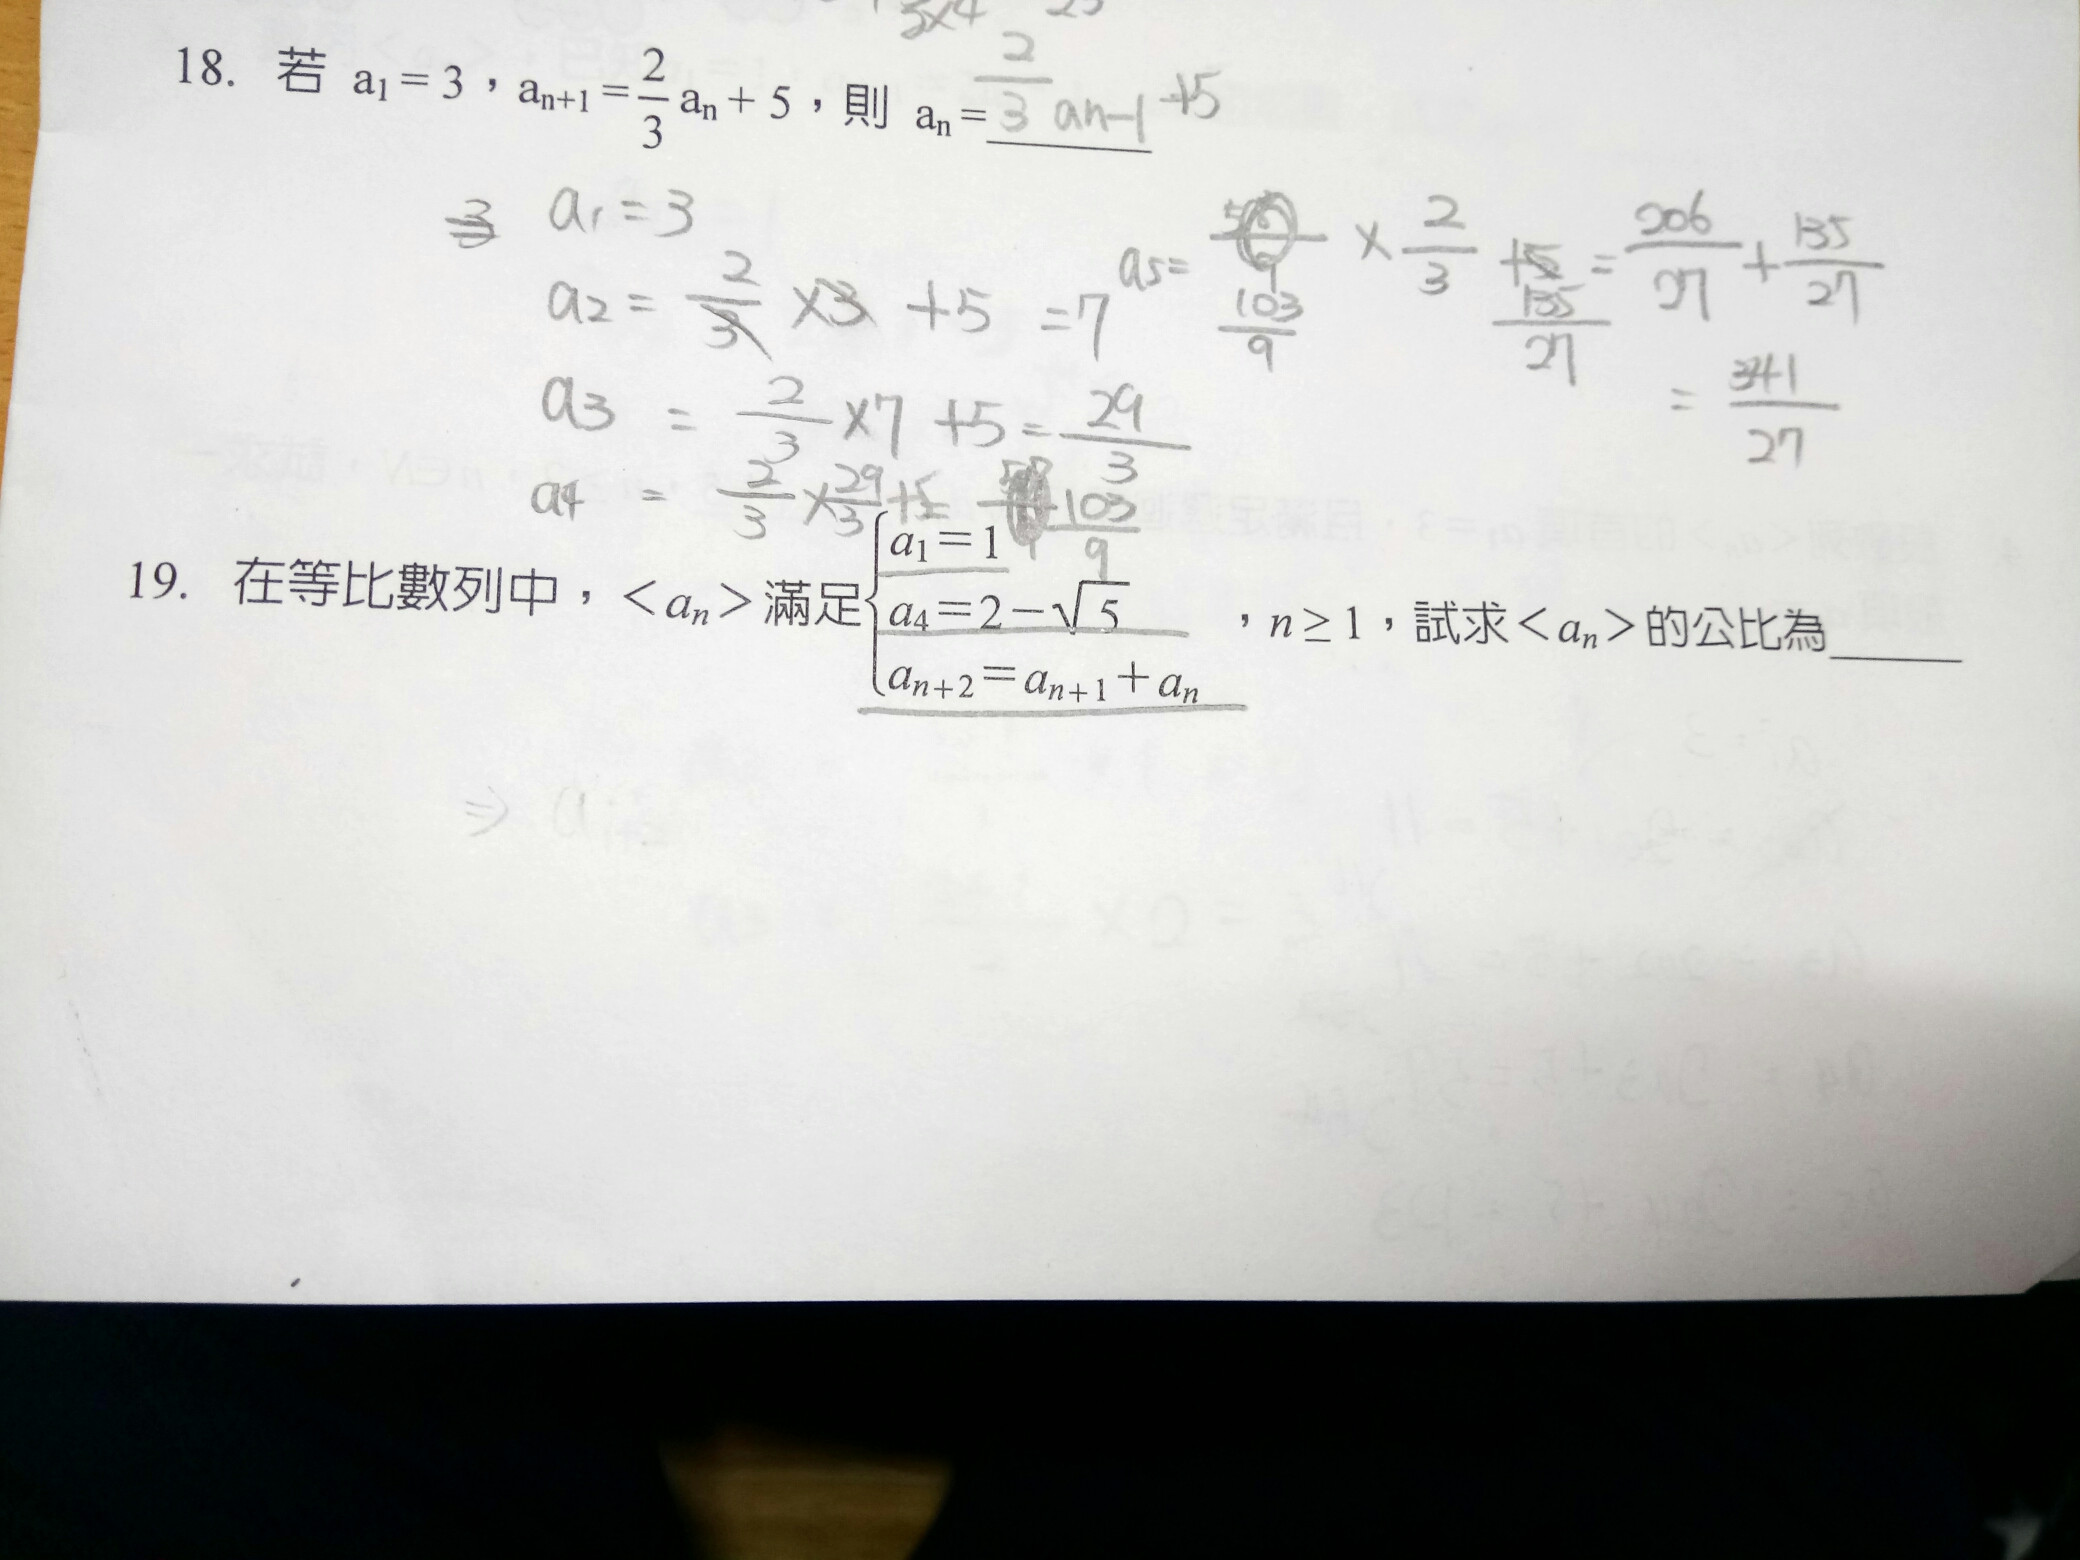 3×4 25
18. 若 a₁ = 3，aₙ₊₁ = 2/3 aₙ + 5，則 aₙ = 2/3 an-1 +5
a₁ = 3
a2 = 2/3 ×3 +5 =7
a3 = 2/3 ×7 +5 = 29/3
a4 = 2/3 × 29/3 +5 = 103/9
a5 = 103/9 × 2/3 + 135/27 = 206/27 + 135/27
= 341/27
19. 在等比數列中，<aₙ>滿足{a₁＝1
a₄＝2－√5
aₙ₊₂＝aₙ₊₁＋aₙ ，n ≥ 1，試求<aₙ>的公比為____